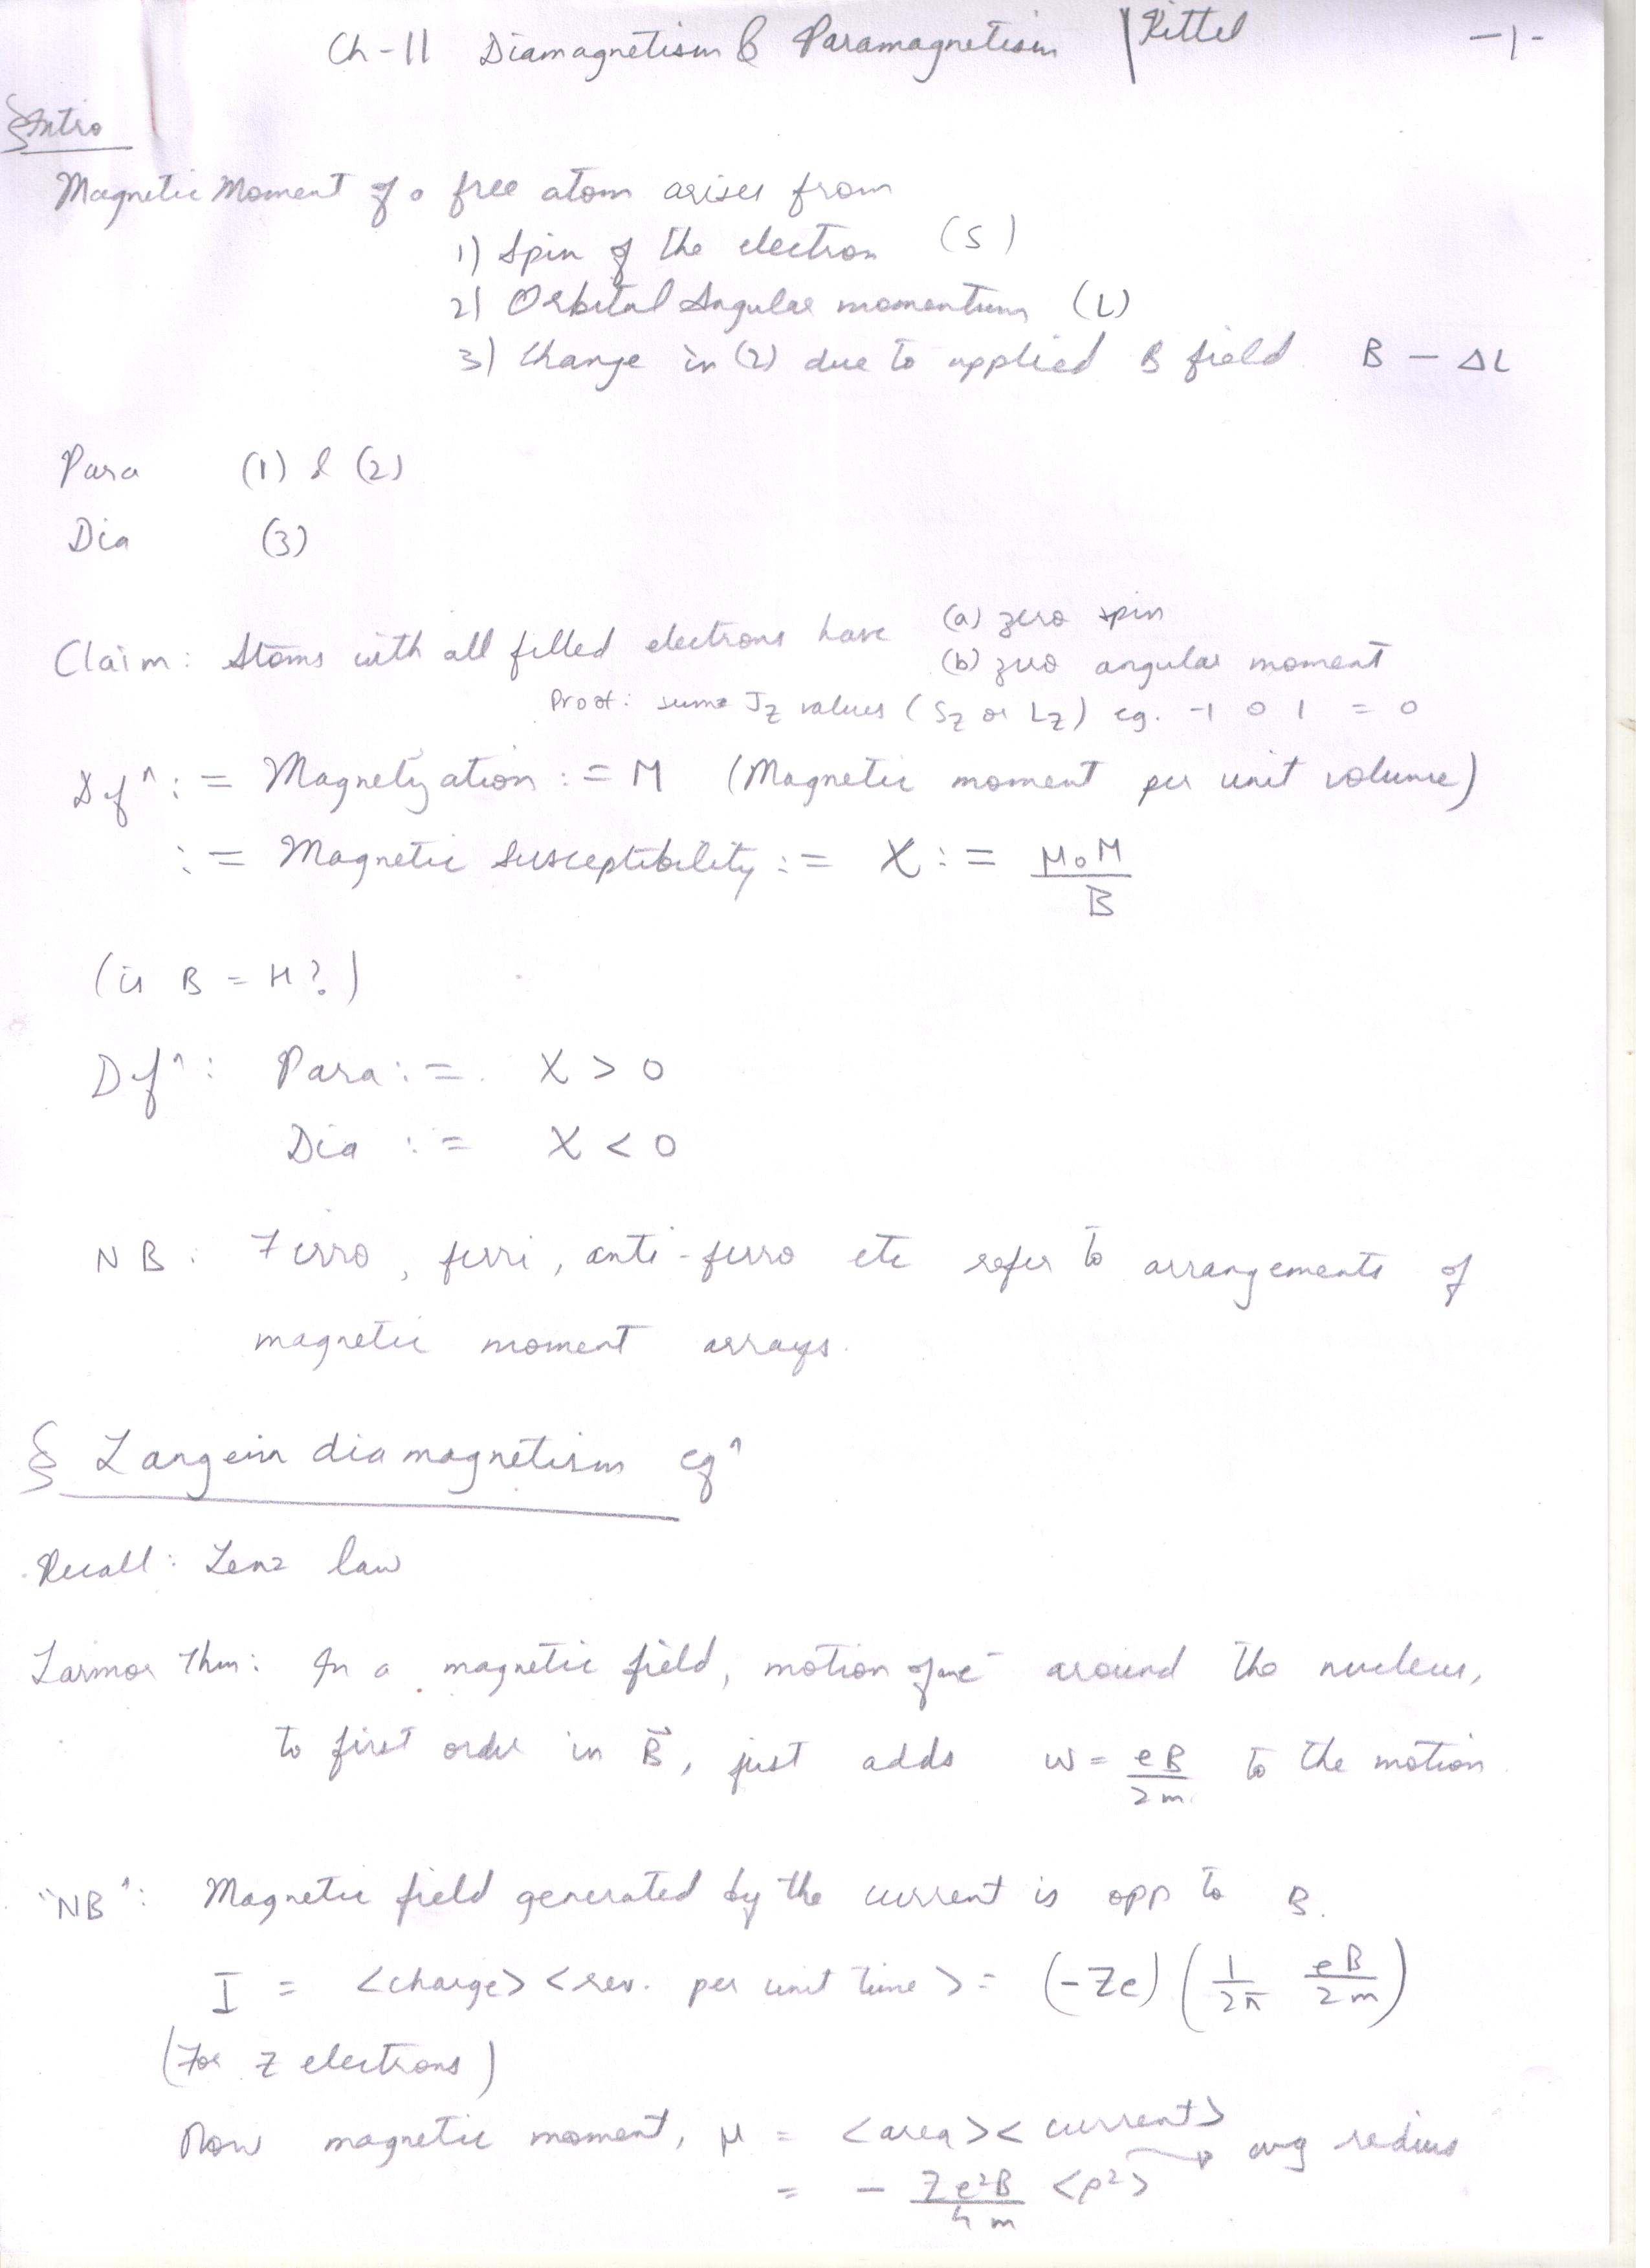 Ch-11 Diamagnetism & Paramagnetism | Kittel -1-
§Intro
Magnetic Moment of a free atom arises from
1) Spin of the electron (S)
2) Orbital Angular momentum (L)
3) Change in (2) due to applied B field B - ΔL
Para (1) & (2)
Dia (3)
Claim: Atoms with all filled electrons have (a) zero spin
(b) zero angular moment
Proof: sum Jz values (Sz or Lz) eg. -1 0 1 = 0
Dfⁿ: := Magnetization := M (Magnetic moment per unit volume)
:= Magnetic Susceptibility := χ := μ₀M/B
(is B = H?)
Dfⁿ: Para := χ > 0
Dia := χ < 0
NB: Ferro, ferri, anti-ferro etc refer to arrangements of
magnetic moment arrays.
§ Langein diamagnetism eqⁿ
Recall: Lenz law
Larmor Thm: In a magnetic field, motion of e⁻ around the nucleus,
to first order in B⃗, just adds ω = eB/2m to the motion
"NB": Magnetic field generated by the current is opp to B.
I = <charge><rev. per unit time> = (-Ze)(1/2π eB/2m)
(For Z electrons)
Now magnetic moment, μ = <area><current>
= - Ze²B/4m <ρ²> → avg radius